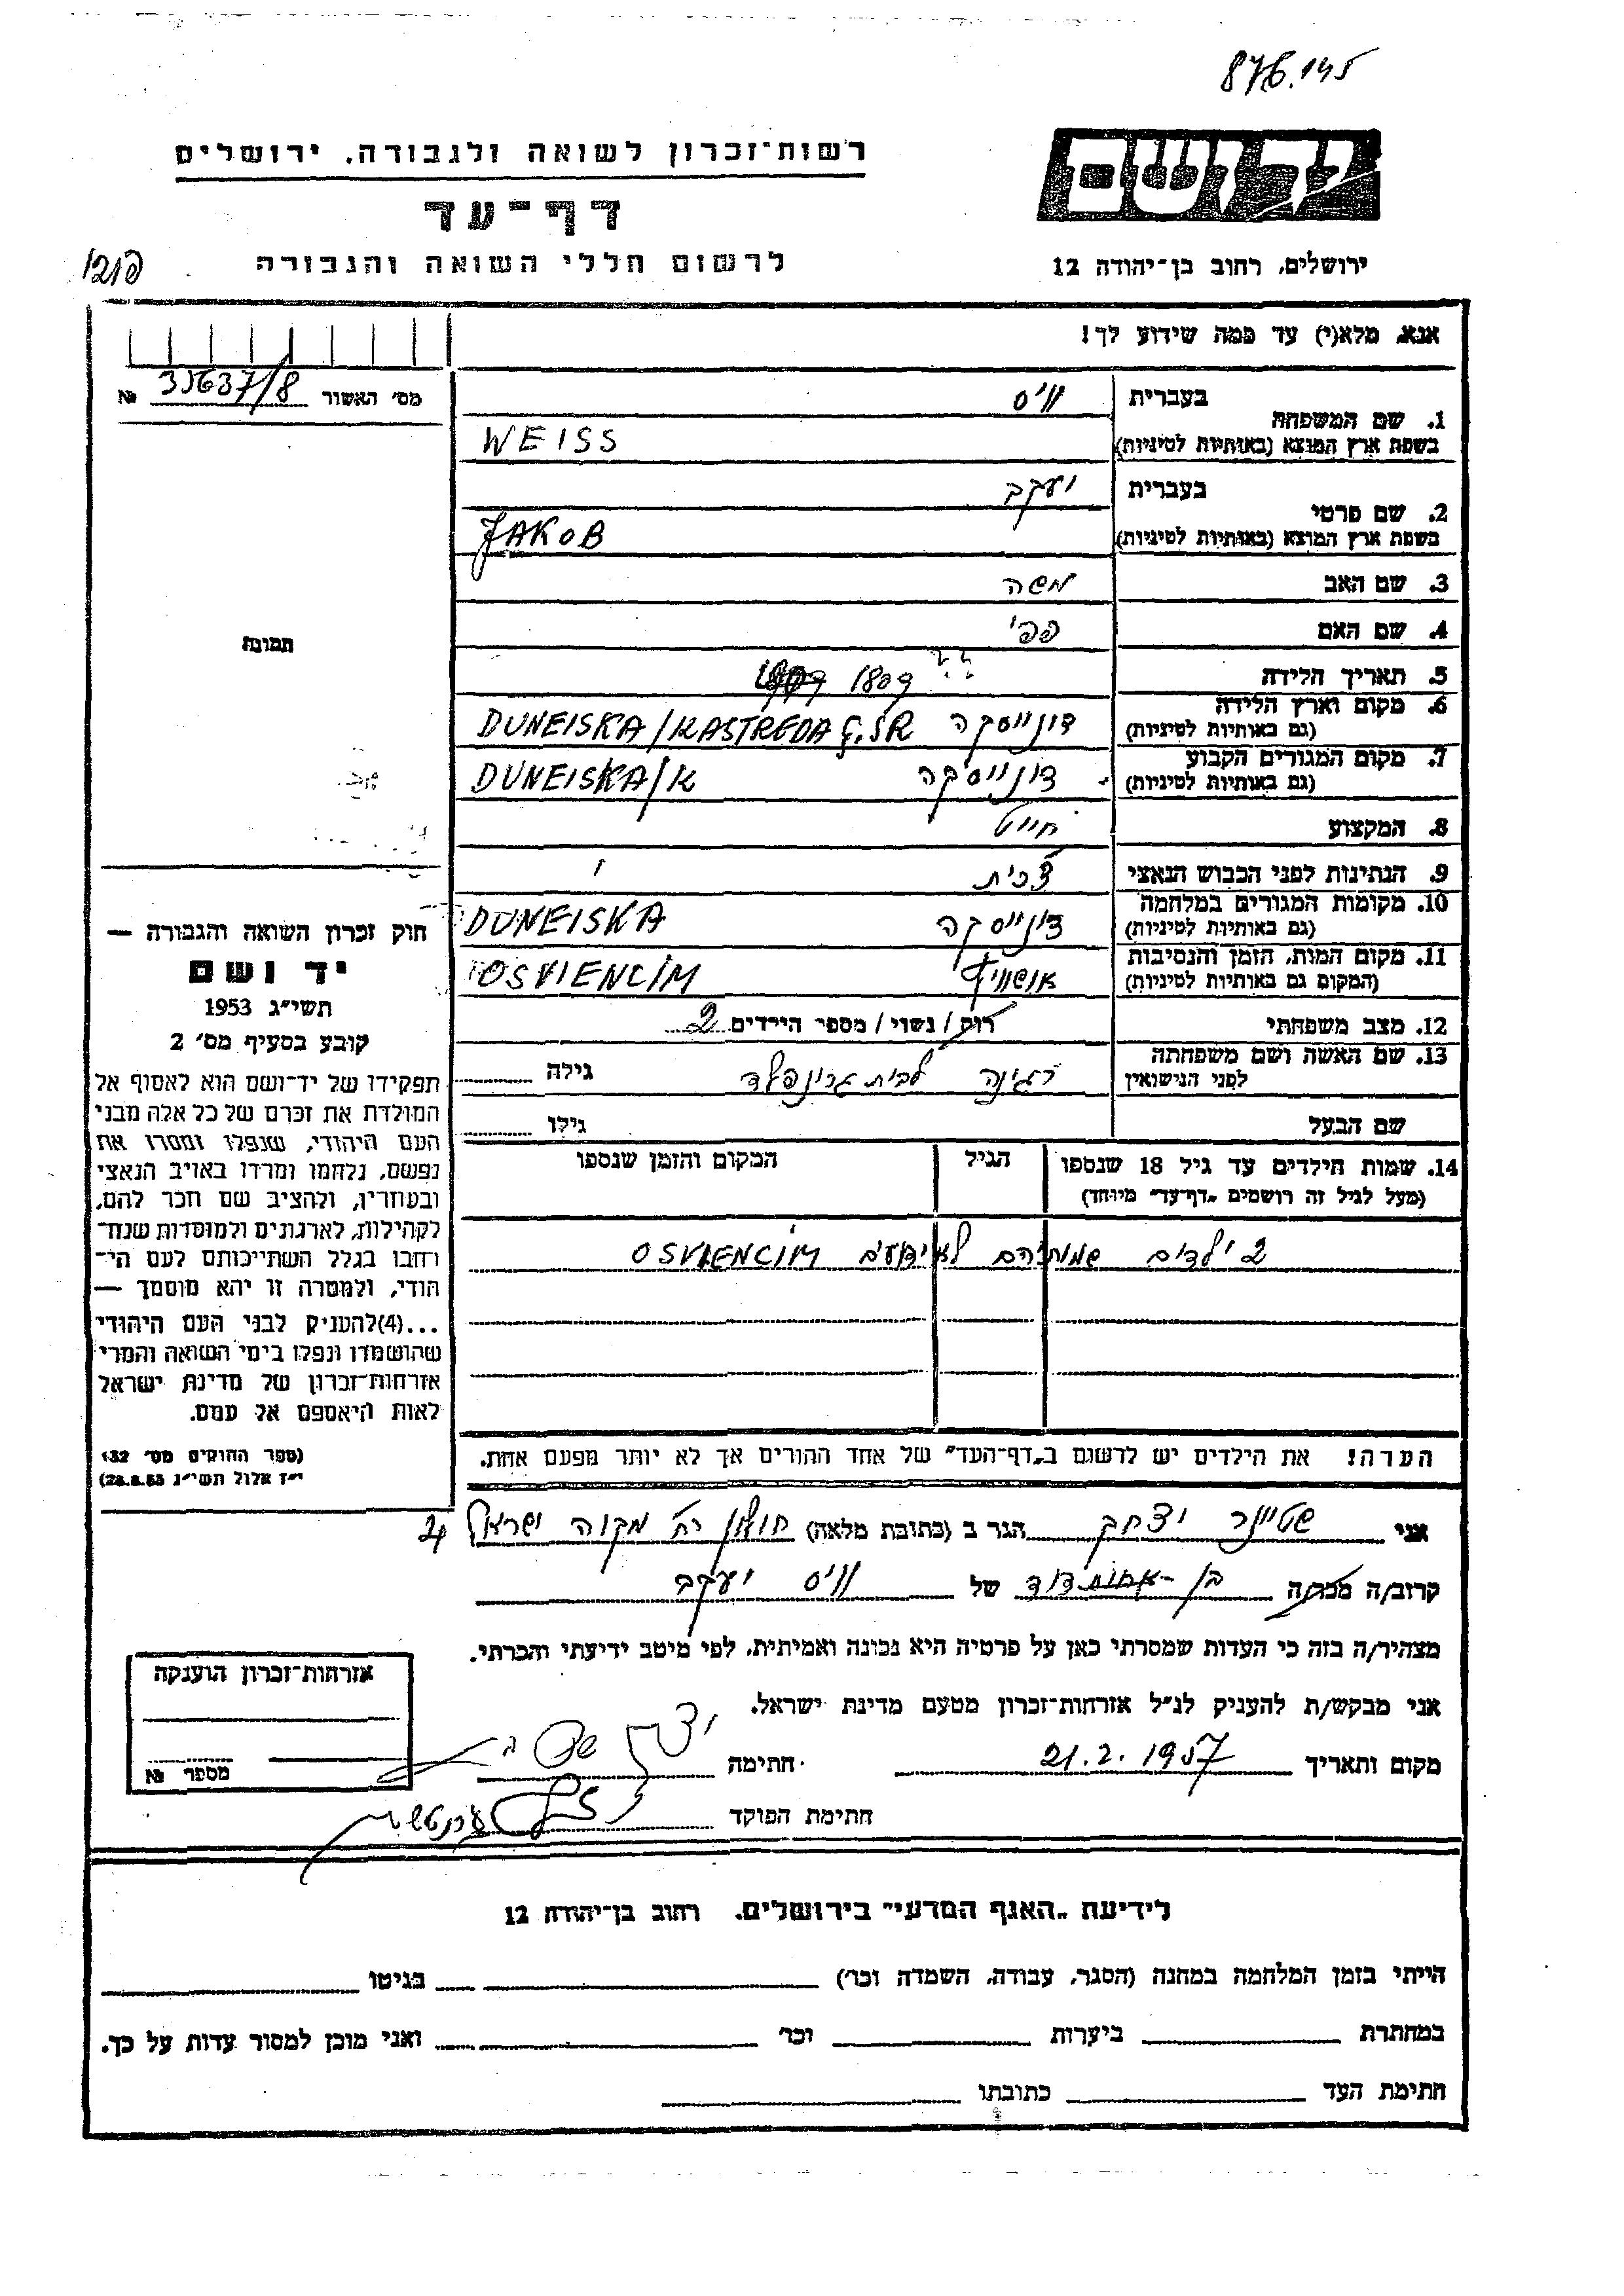 876.145
רשות־זכרון לשואה ולגבורה. ירושלים
יד ושם
דף־עד
לרשום חללי השואה והגבורה
ירושלים, רחוב בן־יהודה 12
אנא, מלא(י) עד כמה שידוע לך!
מס׳ האשור 35637/8 №
תמונה
1. שם המשפחה
בעברית ווייס
בשפת ארץ המוצא (באותיות לטיניות) WEISS
2. שם פרטי
בעברית יעקב
בשפת ארץ המוצא (באותיות לטיניות) JAKOB
3. שם האב משה
4. שם האם פפי
5. תאריך הלידה 1809
6. מקום וארץ הלידה
(גם באותיות לטיניות) דונייסקה DUNEISKA/KASTREDA Č.SR
7. מקום המגורים הקבוע
(גם באותיות לטיניות) דונייסקה DUNEISKA/K
8. המקצוע חייט
9. הנתינות לפני הכבוש הנאצי צ׳כית
10. מקומות המגורים במלחמה
(גם באותיות לטיניות) דונייסקה DUNEISKA
11. מקום המות, הזמן והנסיבות
(המקום גם באותיות לטיניות) אושוויץ OSVIENCIM
12. מצב משפחתי רווק/נשוי/מספר הילדים 2
13. שם האשה ושם משפחתה
לפני הנישואין רגינה לבית גרינפלד גילה
שם הבעל גילו
14. שמות הילדים עד גיל 18 שנספו הגיל המקום והזמן שנספו
(מעל לגיל זה רושמים „דף־עד״ מיוחד)
2 ילדים שמותיהם לא ידועים OSVIENCIM
הערה! את הילדים יש לרשום ב„דף־העד״ של אחד ההורים אך לא יותר מפעם אחת.
חוק זכרון השואה והגבורה —
יד ושם
תשי״ג 1953
קובע בסעיף מס׳ 2
תפקידו של יד־ושם הוא לאסוף אל
המולדת את זכרם של כל אלה מבני
העם היהודי, שנפלו ומסרו את
נפשם, נלחמו ומרדו באויב הנאצי
ובעוזריו, ולהציב שם וזכר להם,
לקהילות, לארגונים ולמוסדות שנח־
רבו בגלל השתייכותם לעם הי־
הודי, ולמטרה זו יהא מוסמך —
...(4)להעניק לבני העם היהודי
שהושמדו ונפלו בימי השואה והמרי
אזרחות־זכרון של מדינת ישראל
לאות היאספם אל עמם.
(ספר החוקים מס׳ 132
י״ז אלול תשי״ג 28.8.53)
אני שטיינר יצחק הגר ב (כתובת מלאה) חולון רח׳ מקוה ישראל 24
קרוב/ה מכר/ה בן דוד של ווייס יעקב
מצהיר/ה בזה כי העדות שמסרתי כאן על פרטיה היא נכונה ואמיתית, לפי מיטב ידיעתי והכרתי.
אני מבקש/ת להעניק לנ״ל אזרחות־זכרון מטעם מדינת ישראל.
מקום ותאריך 21.2.1957 חתימה
חתימת הפוקד
אזרחות־זכרון הוענקה
מספר №
לידיעת „האגף המדעי״ בירושלים. רחוב בן־יהודה 12
הייתי בזמן המלחמה במחנה (הסגר, עבודה, השמדה וכו׳) בגיטו
במחתרת ביערות וכו׳ ואני מוכן למסור עדות על כך.
חתימת העד כתובתו